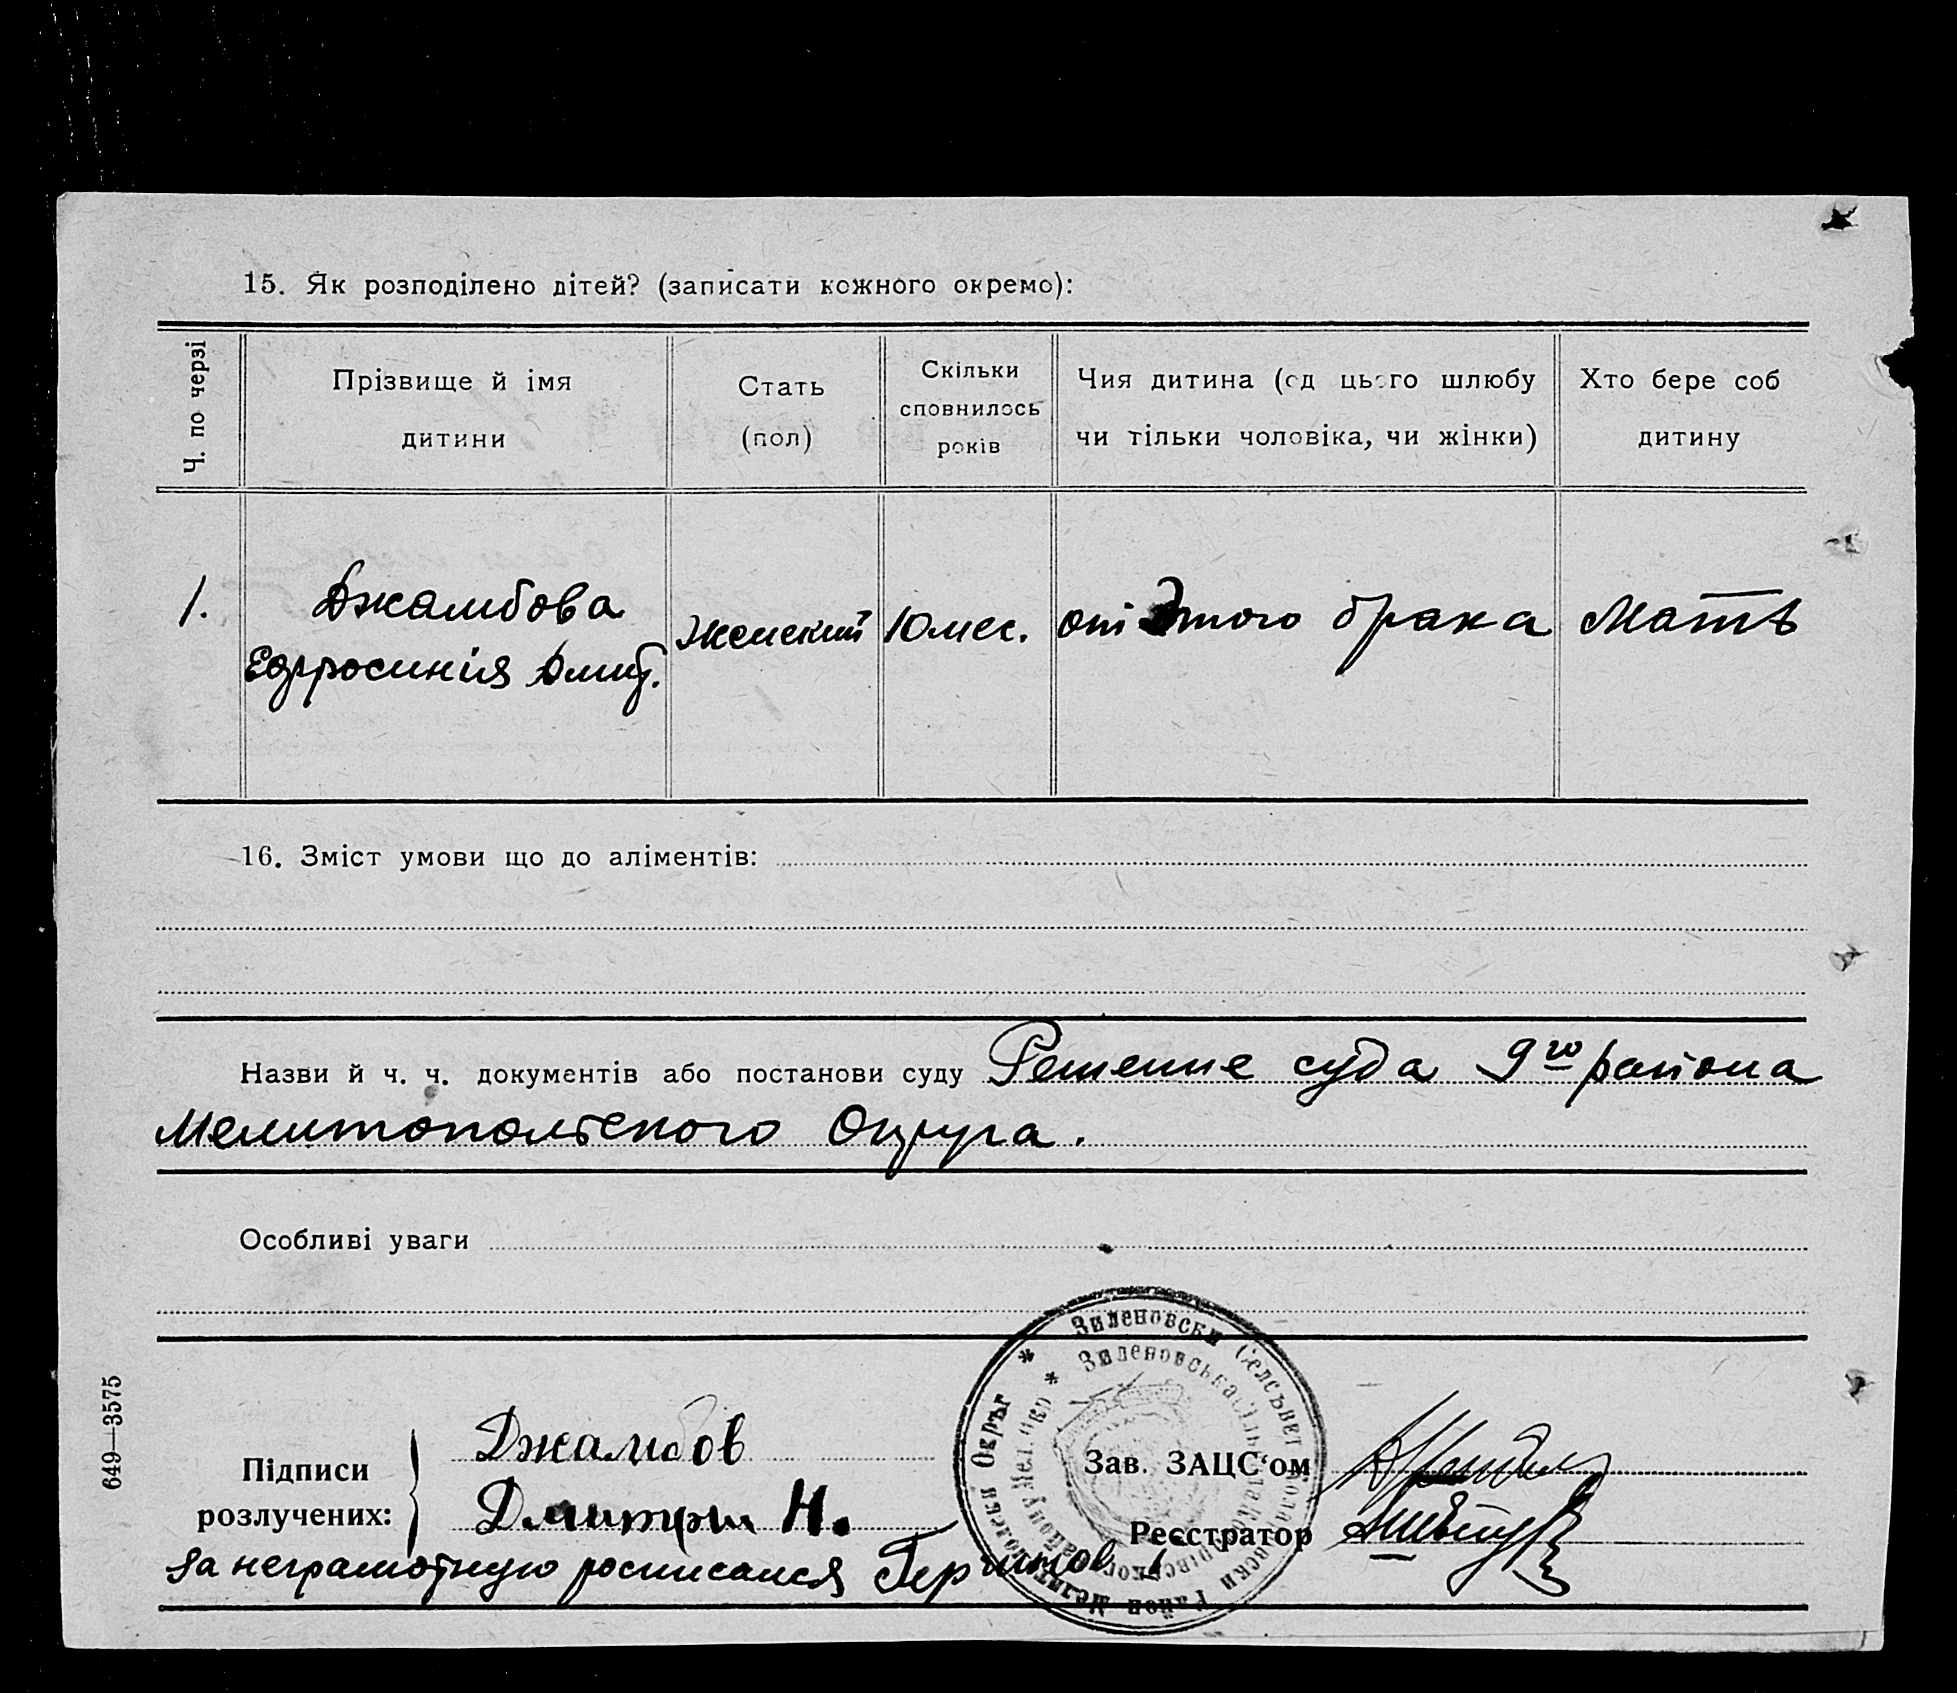 15. Як розподілено дітей? (записати кожного окремо):
Ч. по черзі
Прізвище й імя
дитини
Стать
(пол)
Скільки
сповнилось
років
Чия дитина (од цього шлюбу
чи тільки чоловіка, чи жінки)
Хто бере соб
дитину
1.
Джамбова
Ефросинія Дмит.
Женский
10 мес.
от этого брака
Мать
16. Зміст умови що до аліментів:
Назви й ч. ч. документів або постанови суду Решение суда 9го района
Мелитопольского Округа.
Особливі уваги
649—3575
Підписи
розлучених:
Джамбов
Дмитрий Н.
за неграмотную росписался
Зав. ЗАЦС‘ом
Реєстратор
Зиленовски Селсъвет
Район Мелитополски Окръг
Зиленовська